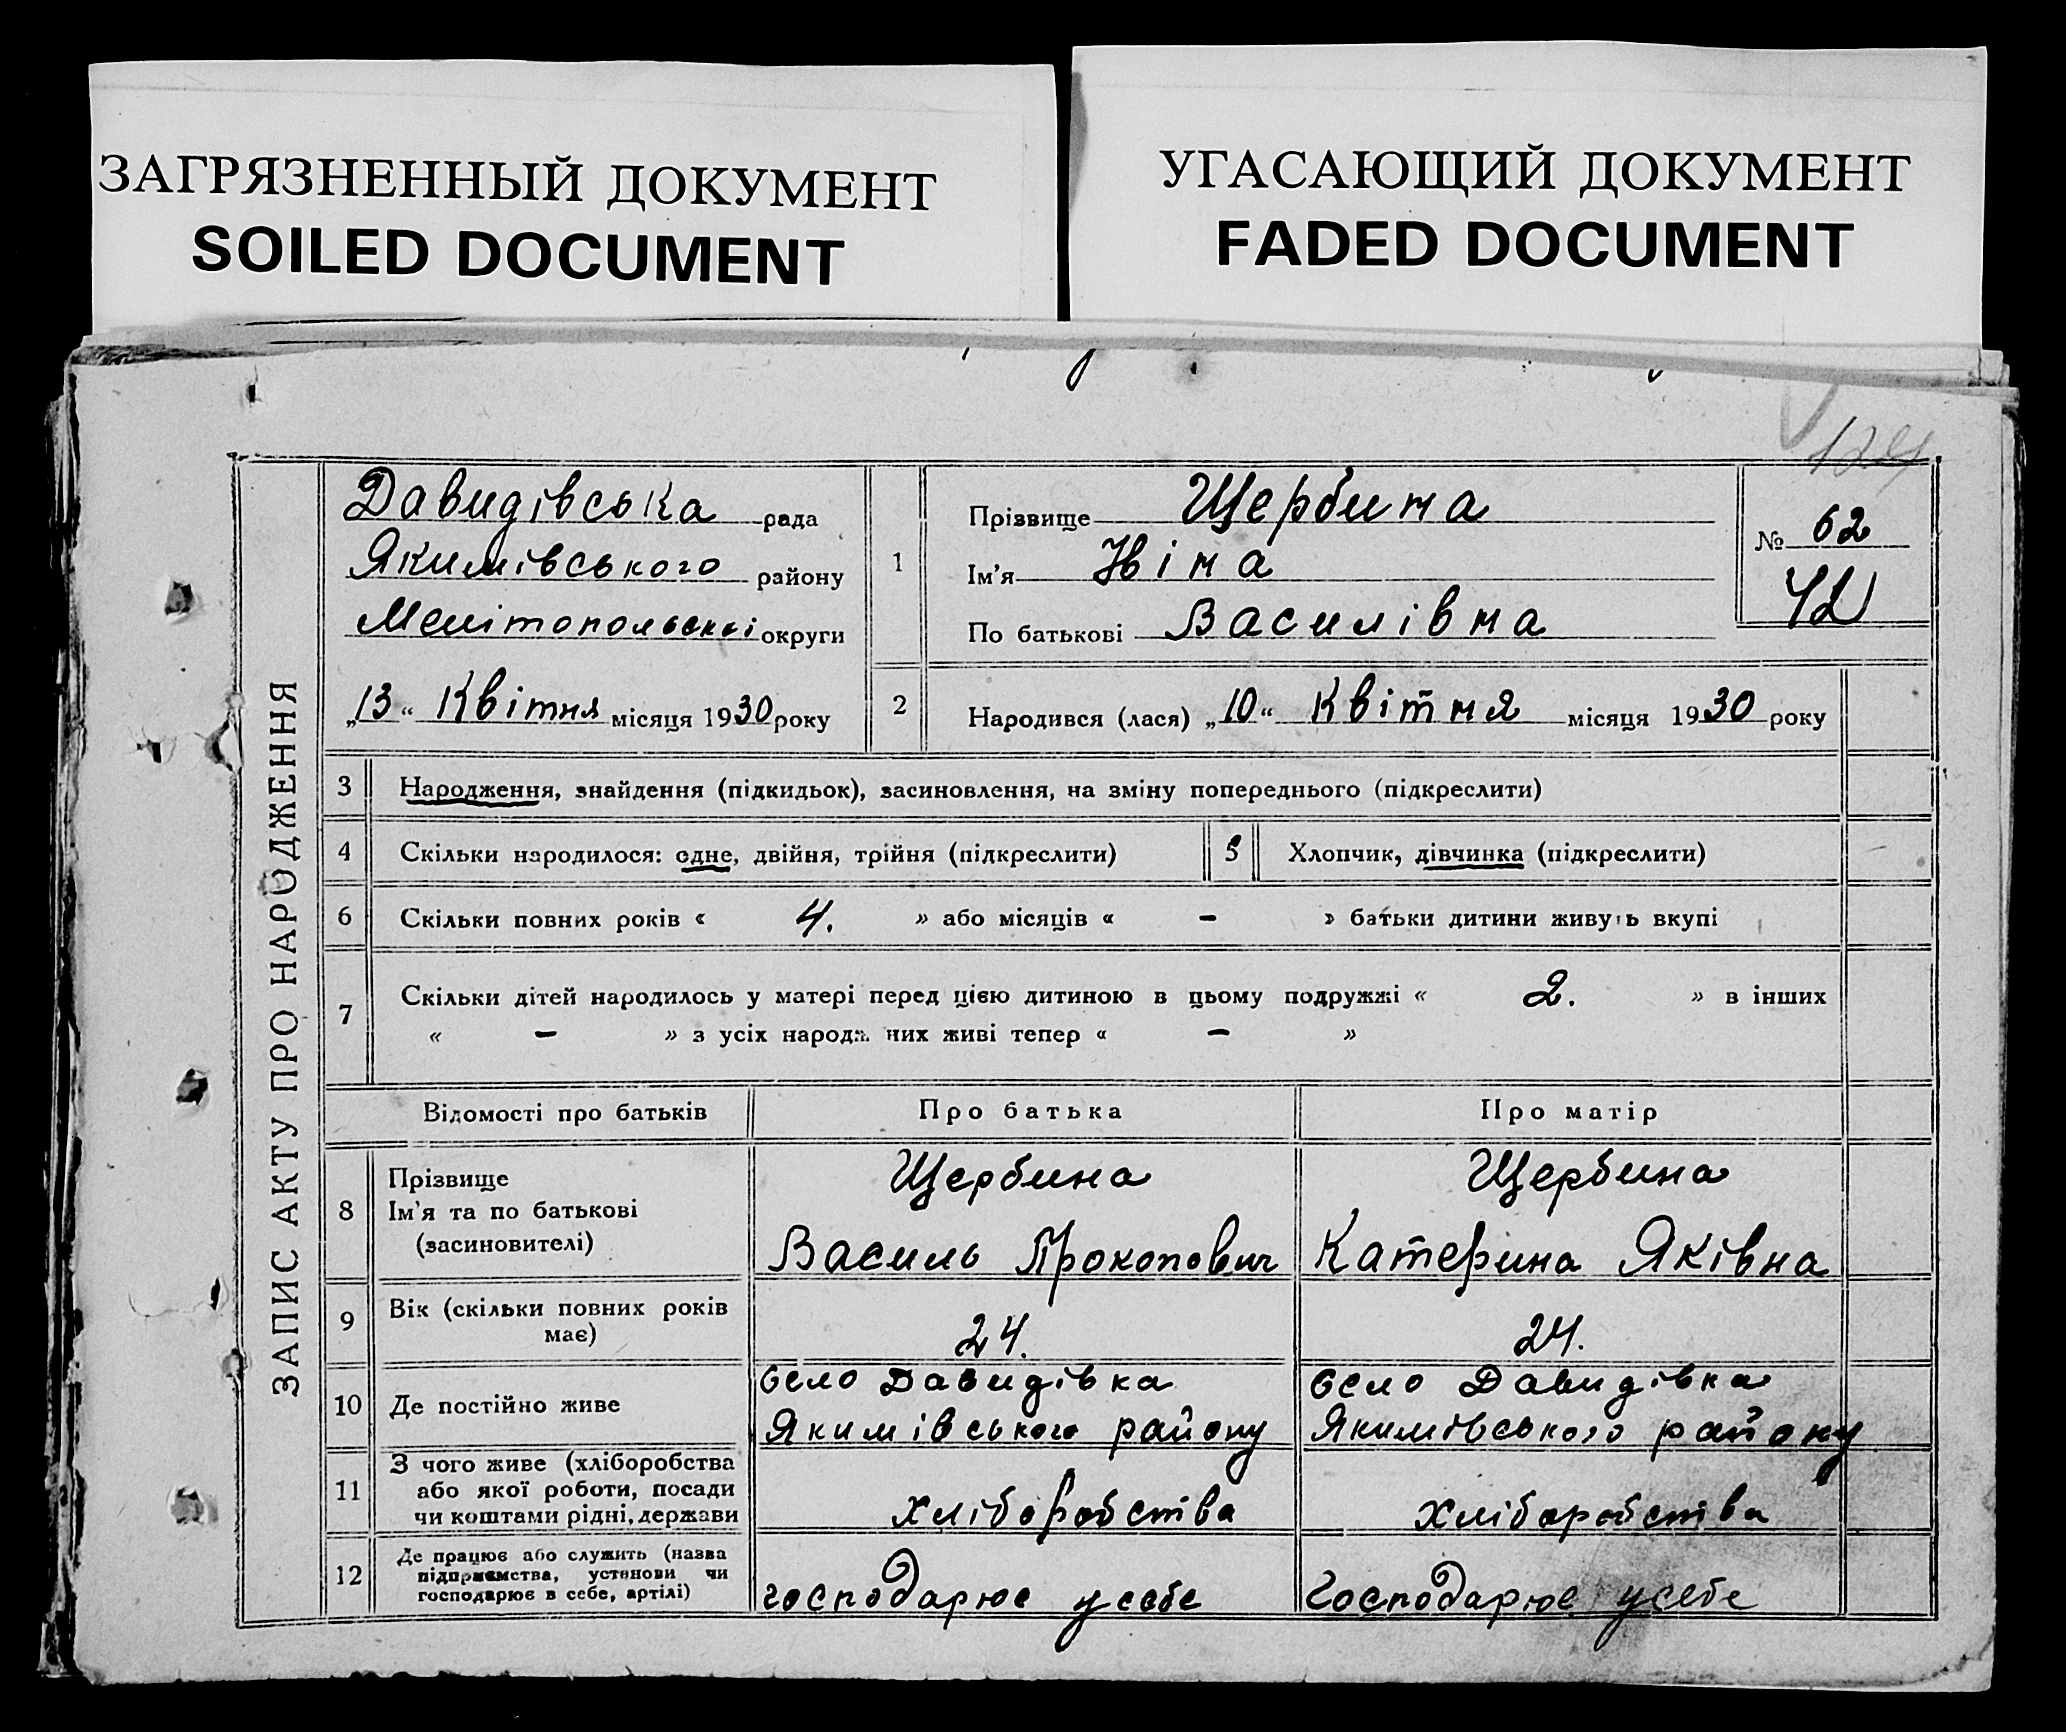 ЗАГРЯЗНЕННЫЙ ДОКУМЕНТ
SOILED DOCUMENT
УГАСАЮЩИЙ ДОКУМЕНТ
FADED DOCUMENT
ЗАПИС АКТУ ПРО НАРОДЖЕННЯ
Давидівська рада
Якимівського району
Мелітопольської округи
„13“ Квітня місяця 1930 року
1
Прізвище Щербина
Ім'я Ніна
По батькові Василівна
№ 62
42
2 Народився (лася) „10“ Квітня місяця 1930 року
3 Народження, знайдення (підкидьок), засиновлення, на зміну попереднього (підкреслити)
4 Скільки народилося: одне, двійня, трійня (підкреслити) 5 Хлопчик, дівчинка (підкреслити)
6 Скільки повних років « 4. » або місяців « – » батьки дитини живуть вкупі
7 Скільки дітей народилось у матері перед цією дитиною в цьому подружжі « 2. » в інших
« – » з усіх народж них живі тепер « – »
Відомості про батьків Про батька Про матір
8 Прізвище
Ім'я та по батькові
(засиновителі)
Щербина
Василь Прокопович
Щербина
Катерина Яківна
9 Вік (скільки повних років
має)
24.
24.
10 Де постійно живе
село Давидівка
Якимівського району
село Давидівка
Якимівського району
11 З чого живе (хліборобства
або якої роботи, посади
чи коштами рідні, держави
хліборобства
хліборобства
12 Де працює або служить (назва
підприємства, установи чи
господарює в себе, артілі)
господарює у себе
господарює у себе